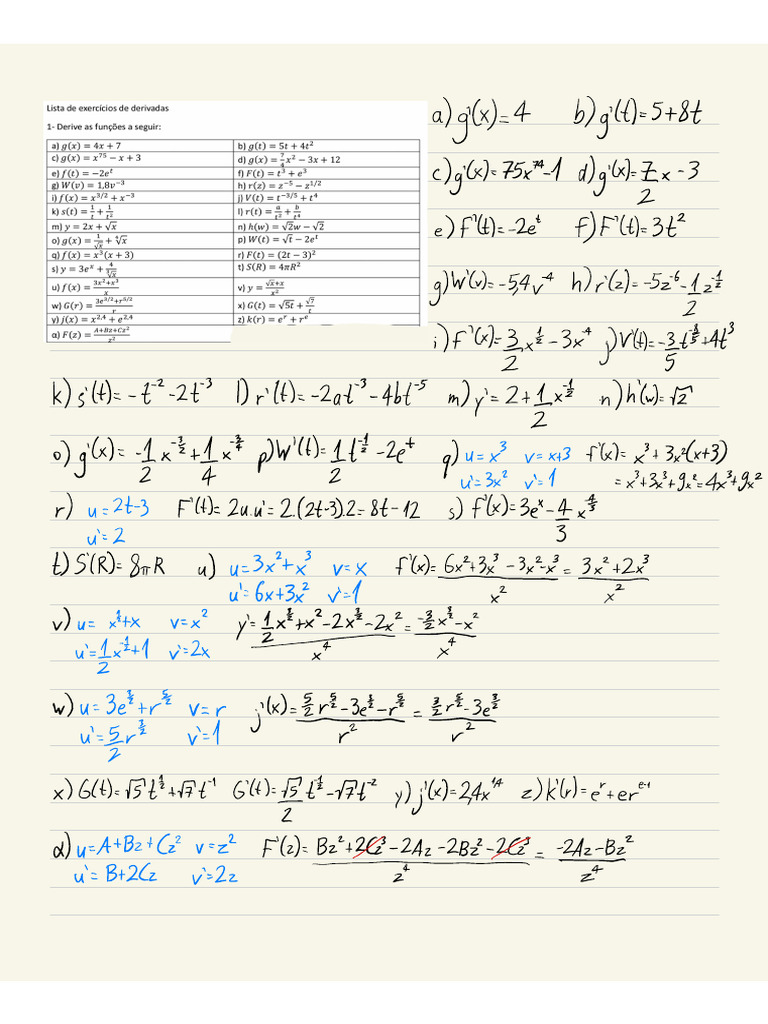 Lista de exercícios de derivadas
1- Derive as funções a seguir:
a) g(x) = 4x + 7 b) g(t) = 5t + 4t²
c) g(x) = x⁷⁵ − x + 3 d) g(x) = 7/4 x² − 3x + 12
e) f(t) = −2eᵗ f) F(t) = t³ + e³
g) W(v) = 1,8v⁻³ h) r(z) = z⁻⁵ − z^(1/2)
i) f(x) = x^(3/2) + x⁻³ j) V(t) = t^(−3/5) + t⁴
k) s(t) = 1/t + 1/t² l) r(t) = a/t² + b/t⁴
m) y = 2x + √x n) h(w) = √2w − √2
o) g(x) = 1/√x + ∜x p) W(t) = √t − 2eᵗ
q) f(x) = x³(x + 3) r) F(t) = (2t − 3)²
s) y = 3eˣ + 4/∛x t) S(R) = 4πR²
u) f(x) = (3x²+x³)/x v) y = (√x+x)/x²
w) G(r) = (3e^(3/2)+r^(5/2))/r x) G(t) = √5t + √7/t
y) j(x) = x^(2,4) + e^(2,4) z) k(r) = eʳ + rᵉ
α) F(z) = (A+Bz+Cz²)/z²
a) g'(x) = 4 b) g'(t) = 5+8t
c) g'(x) = 75x⁷⁴-1 d) g'(x) = 7/2 x - 3
e) f'(t) = -2eᵗ f) F'(t) = 3t²
g) W'(v) = -5,4v⁻⁴ h) r'(z) = -5z⁻⁶ - 1/2 z^(-1/2)
i) f'(x) = 3/2 x^(1/2) - 3x⁴ j) V'(t) = -3/5 t^(-8/5) + 4t³
k) s'(t) = -t⁻² - 2t⁻³ l) r'(t) = -2at⁻³ - 4bt⁻⁵ m) y' = 2 + 1/2 x^(-1/2) n) h'(w) = √2
o) g'(x) = -1/2 x^(-3/2) + 1/4 x^(-3/4) p) W'(t) = 1/2 t^(-1/2) - 2eᵗ q) u = x³ v = x+3 f'(x) = x³ + 3x²(x+3)
u' = 3x² v' = 1 = x³+3x³+9x² = 4x³+9x²
r) u = 2t-3 F'(t) = 2u.u' = 2.(2t-3).2 = 8t - 12 s) f'(x) = 3eˣ - 4/3 x^(4/3)
u' = 2
t) S'(R) = 8πR u) u = 3x² + x³ v = x f'(x) = (6x²+3x³ - 3x² - x³)/x² = (3x² + 2x³)/x²
u' = 6x+3x² v' = 1
v) u = x^(1/2)+x v = x² y' = (1/2 x^(3/2) + x² - 2x^(3/2) - 2x²)/x⁴ = (-3/2 x^(3/2) - x²)/x⁴
u' = 1/2 x^(-1/2) + 1 v' = 2x
w) u = 3e^(3/2) + r^(5/2) v = r j'(x) = (5/2 r^(5/2) - 3e^(3/2) - r^(5/2))/r² = (3/2 r^(5/2) - 3e^(3/2))/r²
u' = 5/2 r^(3/2) v' = 1
x) G(t) = √5 t^(1/2) + √7 t⁻¹ G'(t) = √5/2 t^(-1/2) - √7 t⁻² y) j'(x) = 2,4x^(1,4) z) k'(r) = eʳ + er^(e-1)
α) u = A+Bz+Cz² v = z² F'(z) = (Bz² + 2Cz³ - 2Az - 2Bz² - 2Cz³)/z⁴ = (-2Az - Bz²)/z⁴
u' = B+2Cz v' = 2z